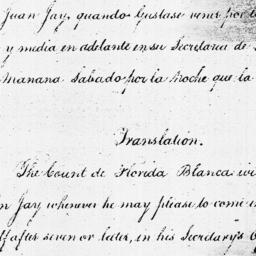 Juan Jay, quando Gustase venir por l
y media en adelante en su Secretaria de
mañana Sabado por la Noche que la
Translation.
The Count de Florida Blanca wi
n Jay whenever he may please to come i
lf after seven or later, in his Secretary's O